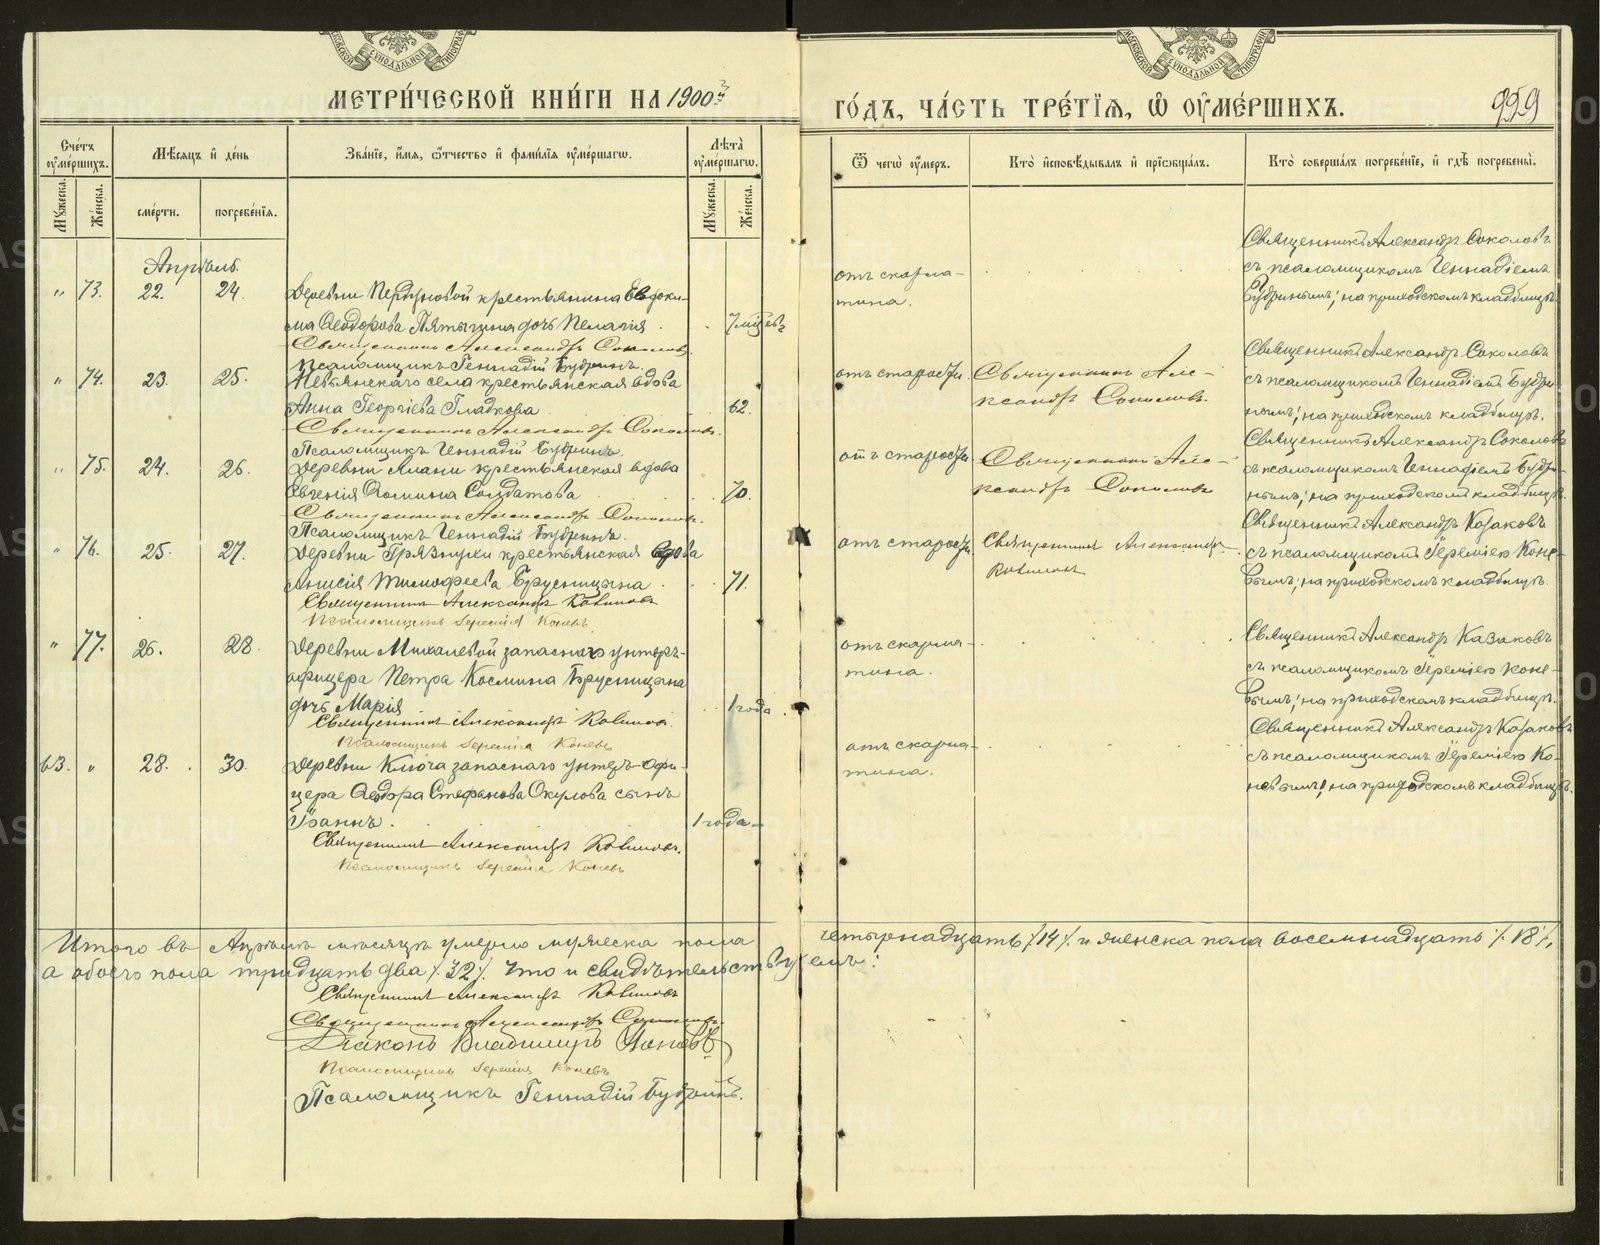 МЕТРИ́ЧЕСКОЙ КНИ́ГИ НА 1900й
ГО́ДЪ, ЧА́СТЬ ТРЕ́ТІЯ, Ѿ ОУ҆МЕ́РШИХЪ.
959
Сче́тъ оу҆ме́ршихъ.
Мѣ́сяцъ и҆ де́нь
Зва́нїе, и҆́мя, ѻ҆́тчество и҆ фами́лїя оу҆ме́ршагѡ.
Лѣ́та оу҆ме́ршагѡ.
Ѿ чегѡ̀ оу҆́меръ.
Кто̀ и҆сповѣ́дывалъ и҆ прїѡбща́лъ.
Кто̀ соверша́лъ погребе́нїе, и҆ гдѣ̀ погребены̀.
Му́жеска.
Же́нска.
сме́рти.
погребе́нїя.
Му́жеска.
Же́нска.
Апрѣль.
" 73. 22. 24.
Деревни Пердуновой крестьянина Евдоки-
ма Ѳеодорова Пятыгина дочь Пелагія.
7 мѣсцевъ
Священникъ Александръ Соколовъ
Псаломщикъ Геннадій Будринъ.
отъ скарла-
тина.
Священникъ Александръ Соколовъ
съ псаломщикомъ Геннадіемъ
Будринымъ; на приходскомъ кладбищѣ.
" 74. 23. 25.
Невьянскаго села крестьянская вдова
Анна Георгіева Гладкова
62.
Священникъ Александръ Соколовъ.
Псаломщикъ Геннадій Будринъ.
отъ старости.
Священникъ Але-
ксандръ Соколовъ.
Священникъ Александръ Соколовъ
съ псаломщикомъ Геннадіемъ Будри-
нымъ; на приходскомъ кладбищѣ.
" 75. 24. 26.
Деревни Ялани крестьянская вдова
Евгенія Ѳомина Солдатова
70.
Священникъ Александръ Соколовъ.
Псаломщикъ Геннадій Будринъ.
отъ старости.
Священникъ Але-
ксандръ Соколовъ
Священникъ Александръ Соколовъ
съ псаломщикомъ Геннадіемъ Будри-
нымъ; на приходскомъ кладбищѣ.
" 76. 25. 27.
Деревни Грязнухи крестьянская вдова
Анисія Тимофеева Брусницына
71.
Священникъ Александръ Казаковъ
Псаломщикъ Іеремія Коневъ
отъ старости.
Священникъ Александръ
Казаковъ
Священникъ Александръ Казаковъ
съ псаломщикомъ Іереміею Коне-
вымъ; на приходскомъ кладбищѣ.
" 77. 26. 28.
Деревни Михалевой запаснаго унтеръ-
офицера Петра Космина Брусницына
дочь Марія
1 года
Священникъ Александръ Казаковъ
Псаломщикъ Іеремія Коневъ
отъ скарла-
тина.
Священникъ Александръ Казаковъ
съ псаломщикомъ Іереміею Коне-
вымъ; на приходскомъ кладбищѣ.
63. " 28. 30.
Деревни Ключа запаснаго унтеръ-офи-
цера Ѳеодора Стефанова Окулова сынъ
Іоаннъ.
1 года
Священникъ Александръ Казаковъ.
Псаломщикъ Іеремія Коневъ
отъ скарла-
тина.
Священникъ Александръ Казаковъ
съ псаломщикомъ Іереміею Ко-
невымъ; на приходскомъ кладбищѣ.
Итого въ Апрѣлѣ мѣсяцѣ умерло мужеска пола четырнадцать /14/ и женска пола восемнадцать /18/,
а обоего пола тридцать два /32/. Что и свидѣтельствуемъ:
Священникъ Александръ Казаковъ
Священникъ Александръ Соколовъ.
Діаконъ Владимиръ
Псаломщикъ Іеремія Коневъ
Псаломщикъ Геннадій Будринъ.
METRIKI.GASO-URAL.RU